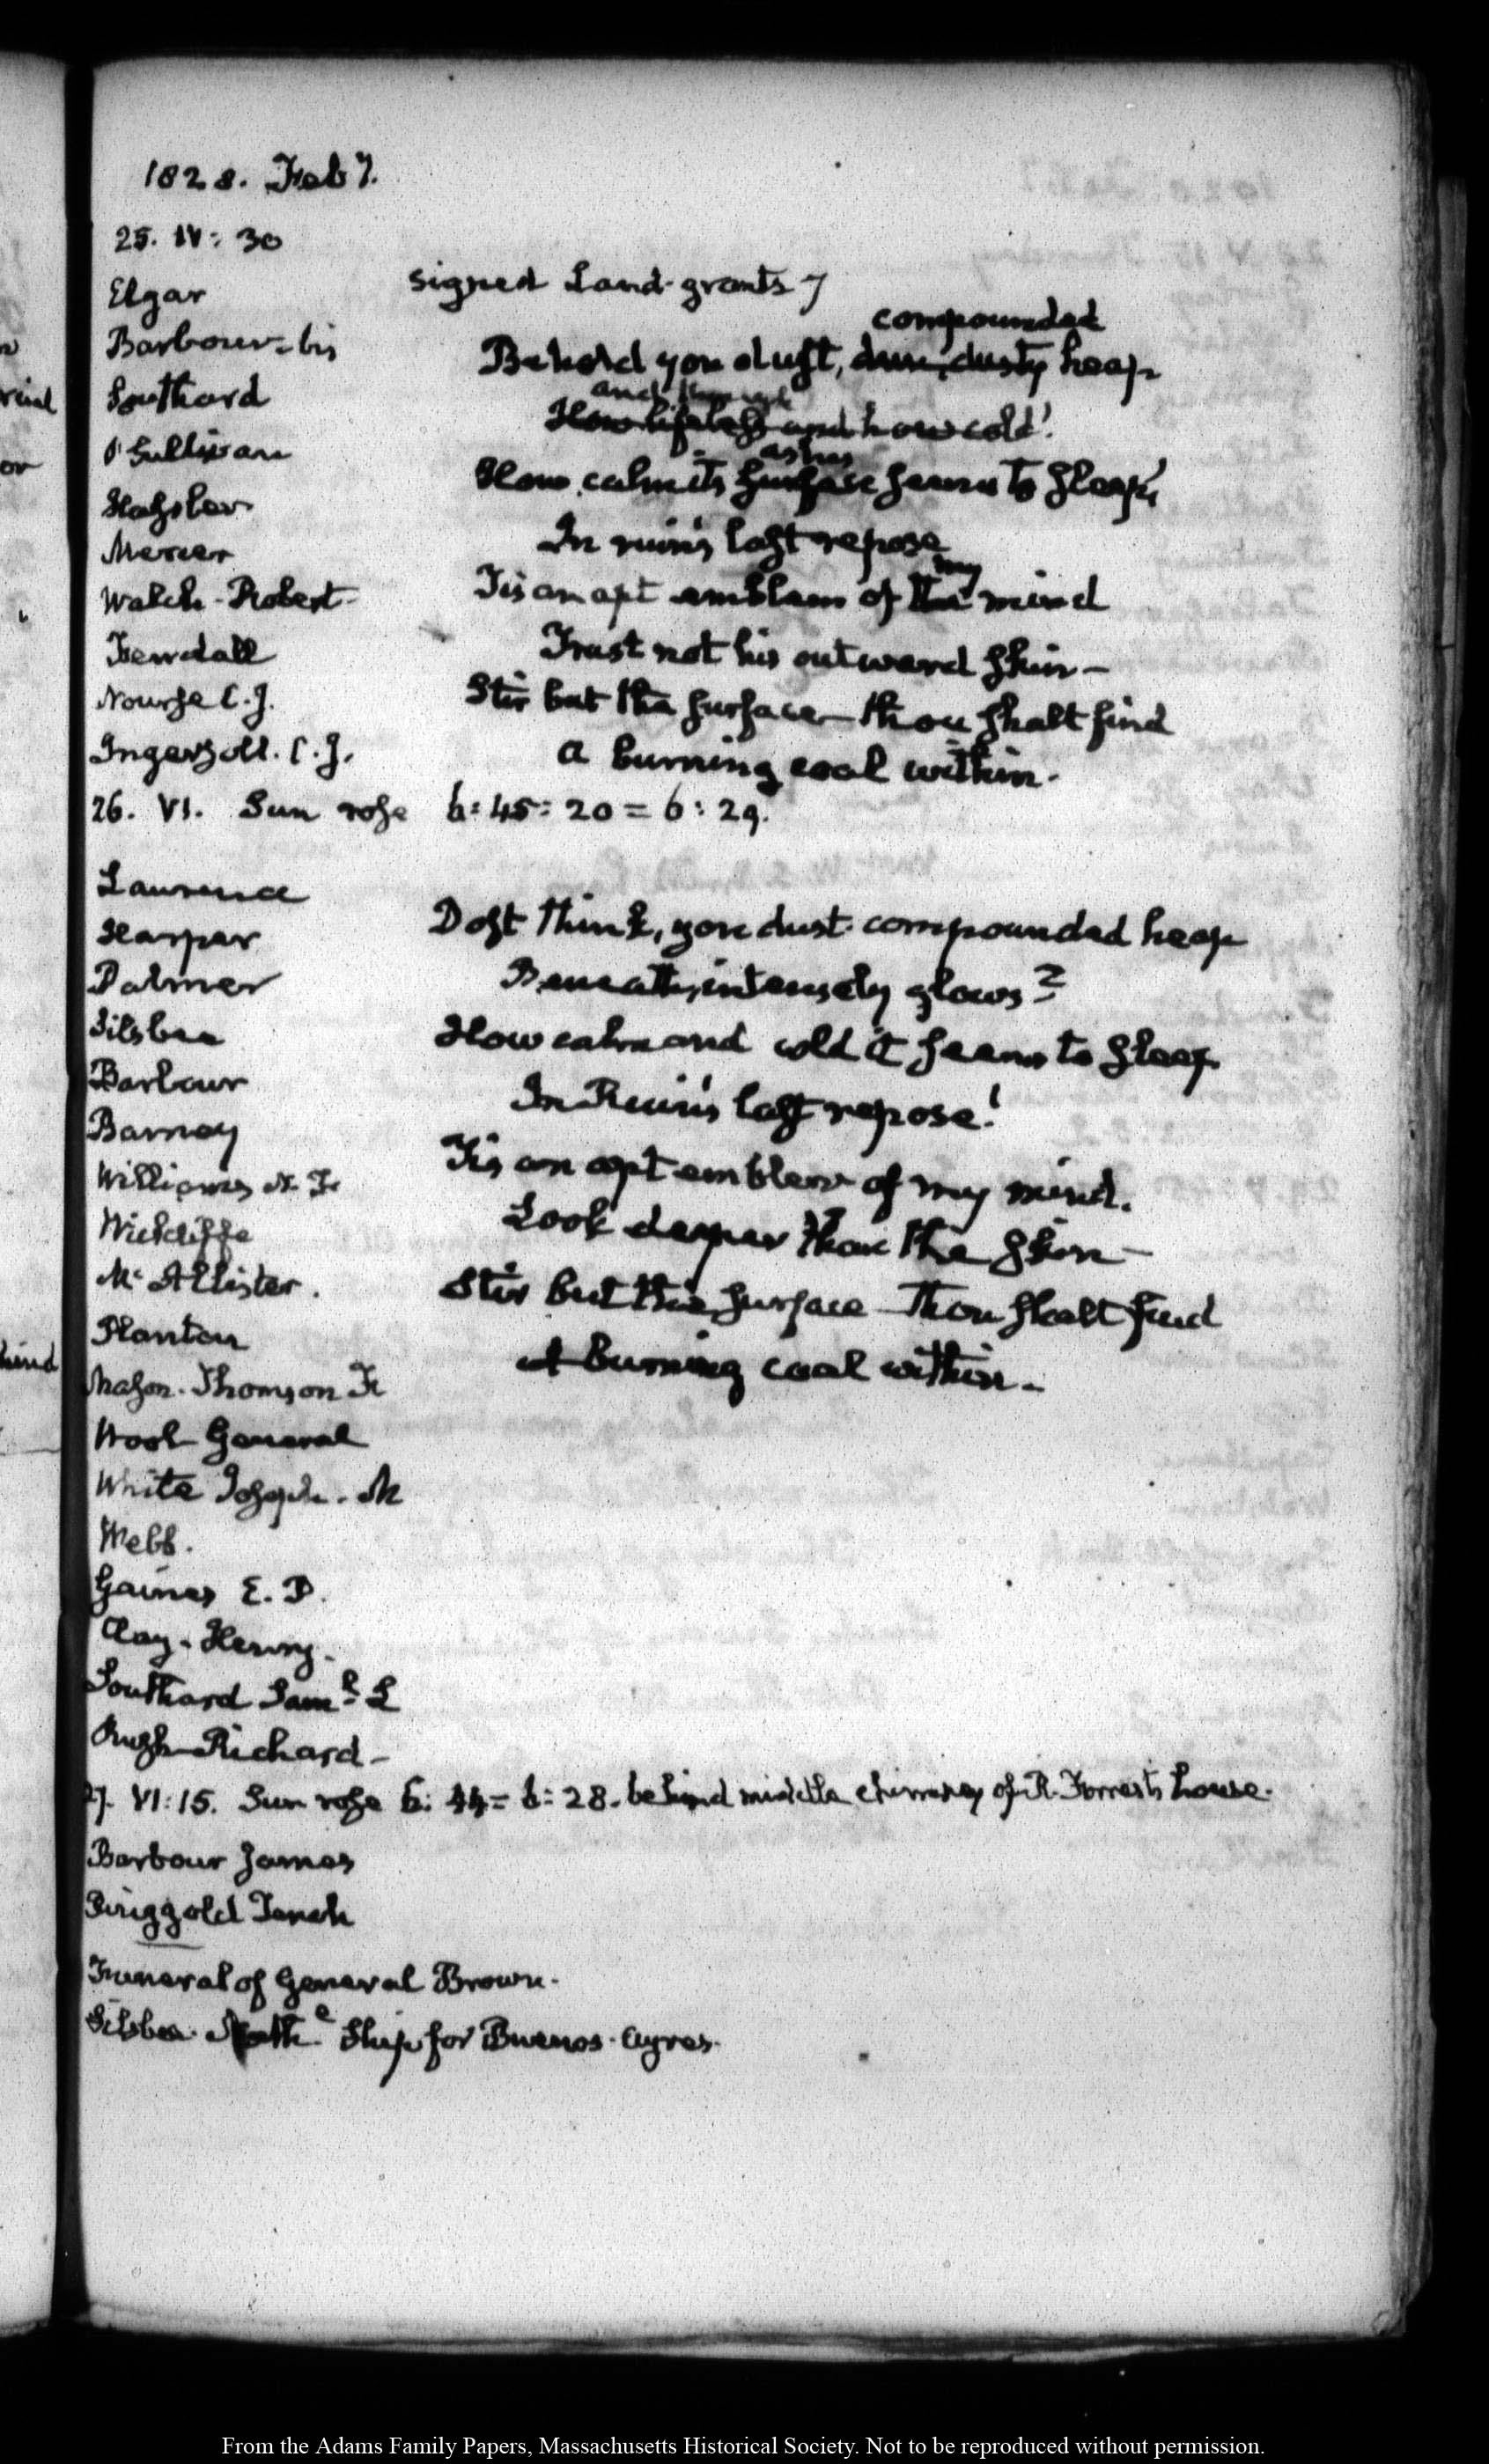 1828. Feb y.
25. IV: 30
Elgar
signed Land-grants 7
Barbour-bis
compounded
Behold yon dust, dun, dusty heap
Southard
and
How lifeless and how cold!
O'Sullivan
ashes
How calm its surface seems to sleep,
Hassler
In ruin's last repose
Mercer
my
Walsh-Robert-
Tis an apt emblem of the mind
Kendall
Trust not his outward skin-
Nourse C.J.
Stir but the surface-thou shalt find
Ingersoll. C.J.
a burning coal within.
26. VI. Sun rose 6:45:20 = 6:29.
Lawrence
Dost think, yon dust-compounded heap
Harper
Palmer
Beneath, intensely glows?
Silsbee
How calm and cold it seems to sleep
Barbour
In Ruin's last repose!
Barney
Tis an apt emblem of my mind.
Williams N. Fr
Look deeper than the skin-
Wickliffe
McAllister.
Stir but the surface-Thou shalt find
Stanton
A burning coal within-
Mason-Thomson Fr
Wool General
White Joseph. M
Webb.
Gaines E. P.
Clay-Henry.
Southard Saml. L
Rush-Richard-
27. VI:15. Sun rose 6:44=6:28. behind middle chimney of R. Forrest's house.
Barbour James
Ringgold Tench
Funeral of General Brown.
Silsbee. Nathe. Ship for Buenos-Ayres.
From the Adams Family Papers, Massachusetts Historical Society. Not to be reproduced without permission.